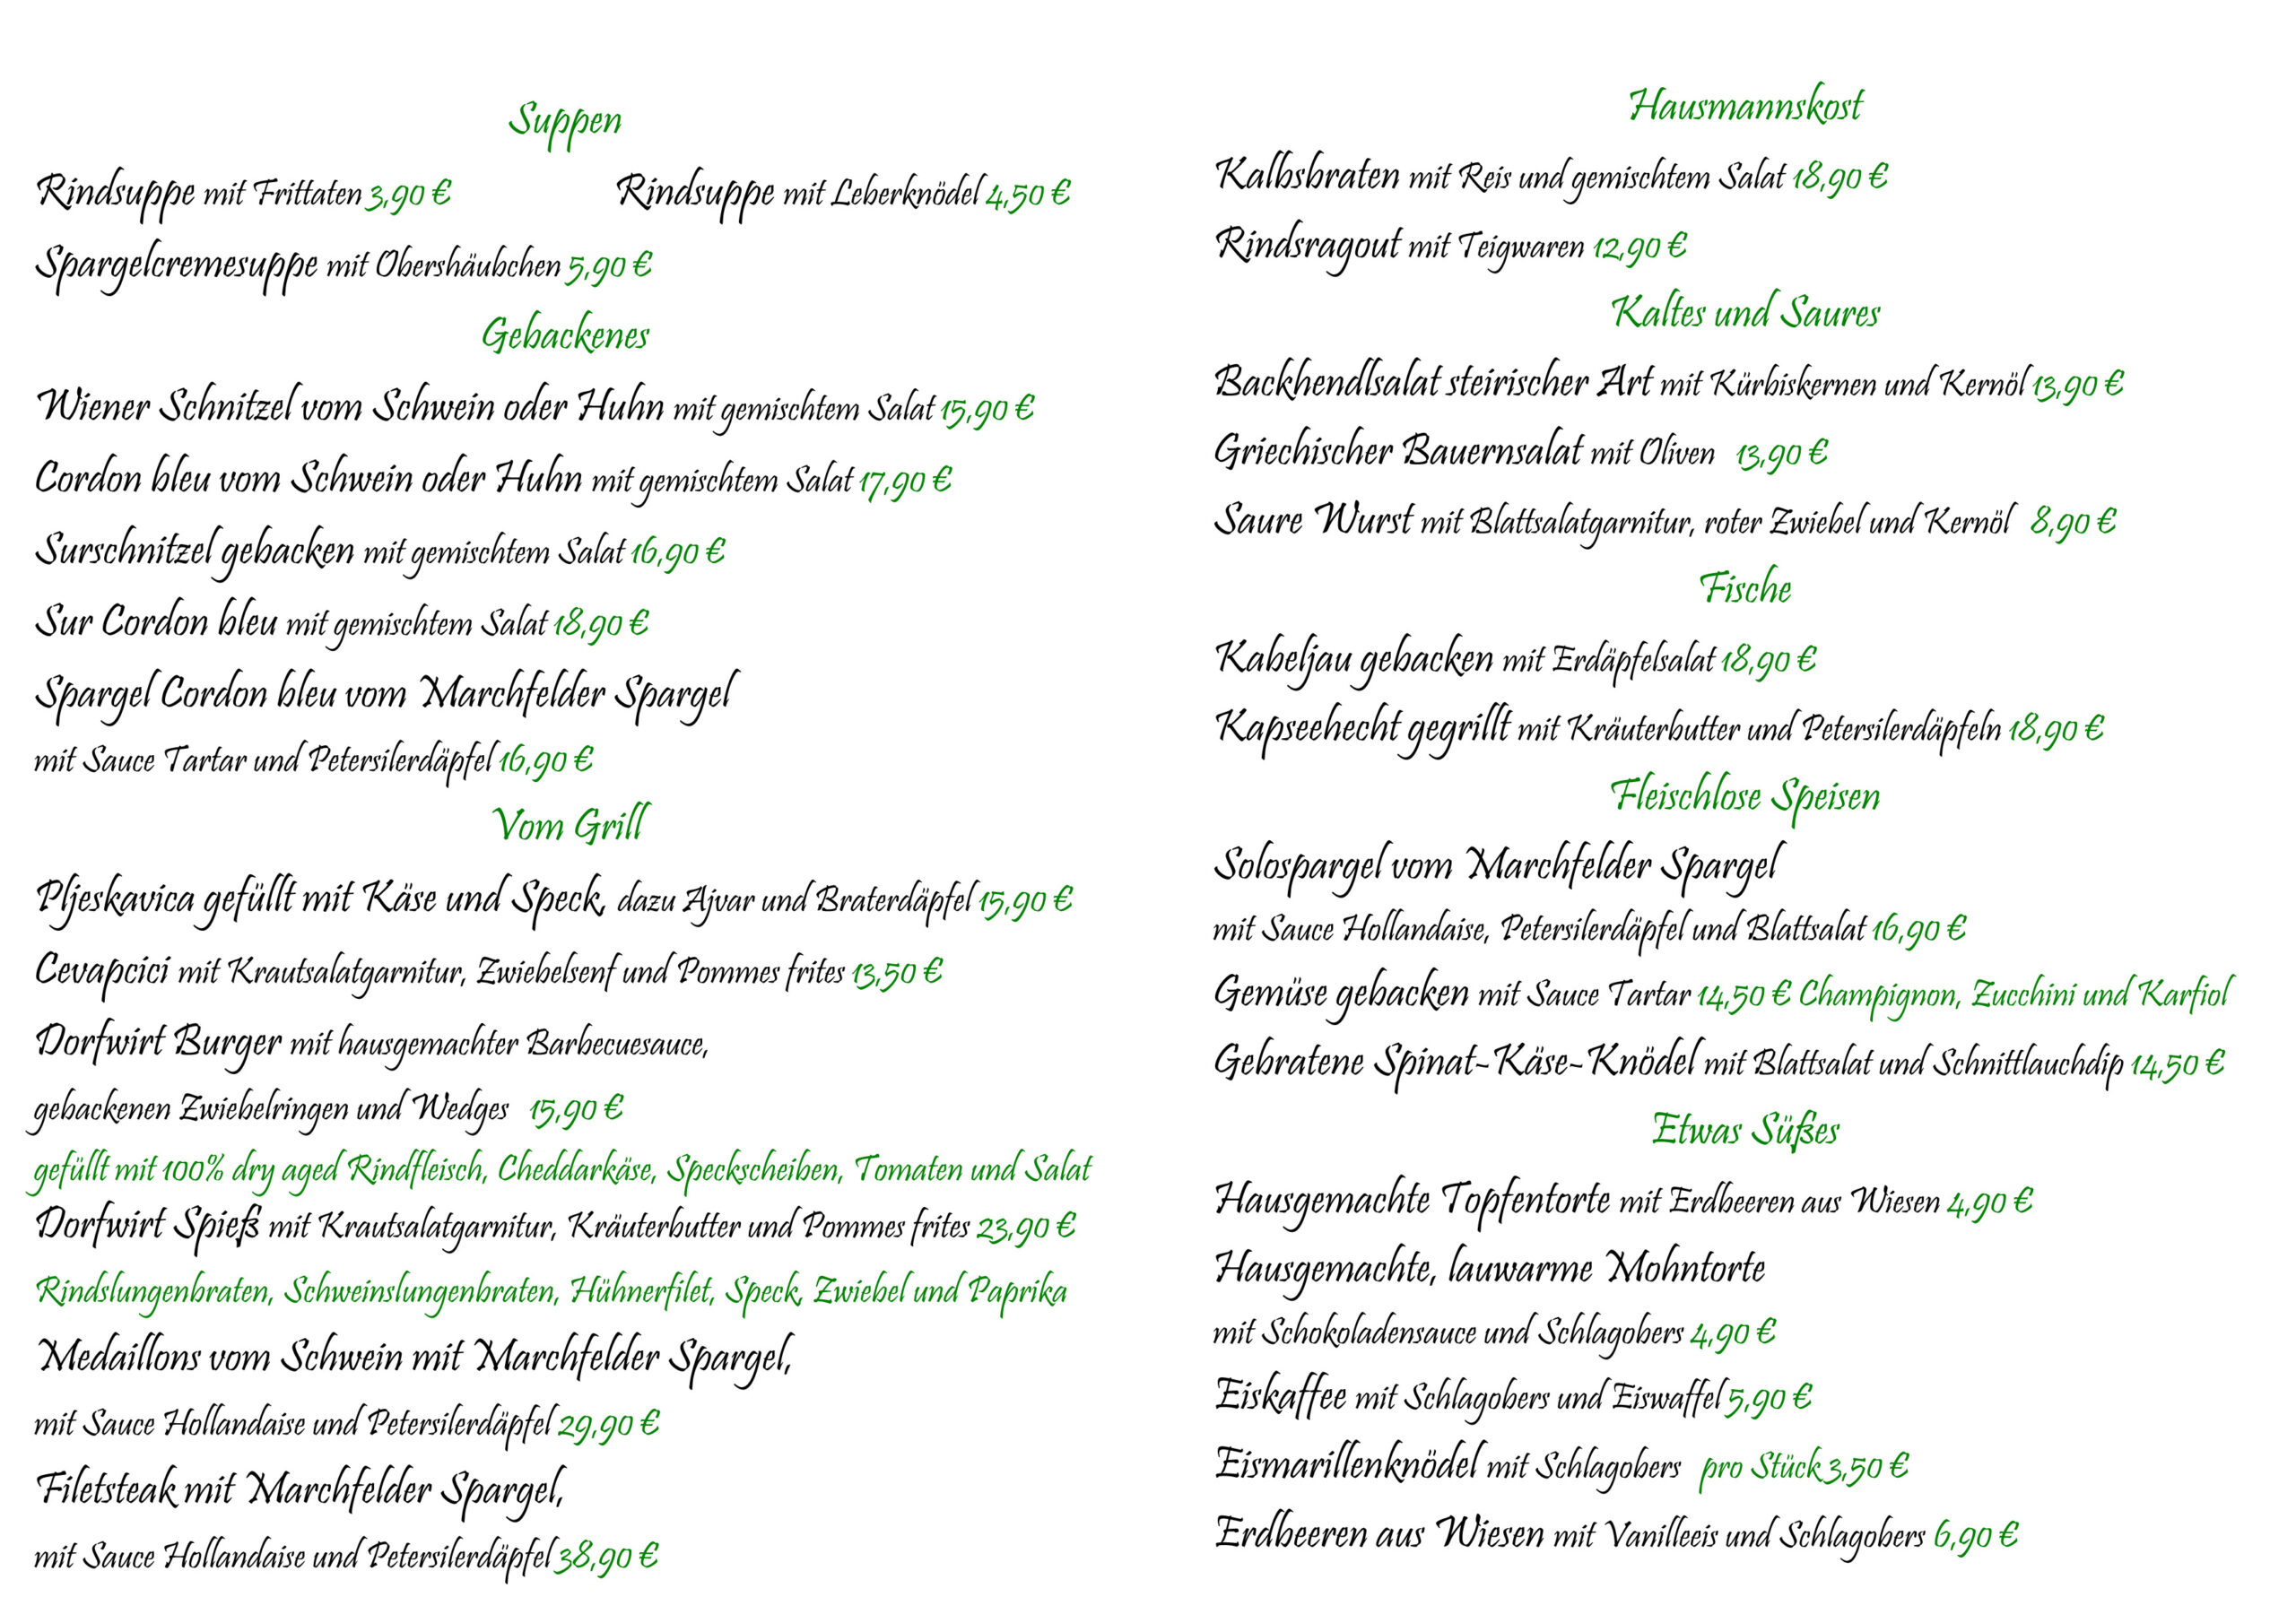 Suppen
Rindsuppe mit Frittaten 3,90 € Rindsuppe mit Leberknödel 4,50 €
Spargelcremesuppe mit Obershäubchen 5,90 €
Gebackenes
Wiener Schnitzel vom Schwein oder Huhn mit gemischtem Salat 15,90 €
Cordon bleu vom Schwein oder Huhn mit gemischtem Salat 17,90 €
Surschnitzel gebacken mit gemischtem Salat 16,90 €
Sur Cordon bleu mit gemischtem Salat 18,90 €
Spargel Cordon bleu vom Marchfelder Spargel
mit Sauce Tartar und Petersilerdäpfel 16,90 €
Vom Grill
Pljeskavica gefüllt mit Käse und Speck, dazu Ajvar und Braterdäpfel 15,90 €
Cevapcici mit Krautsalatgarnitur, Zwiebelsenf und Pommes frites 13,50 €
Dorfwirt Burger mit hausgemachter Barbecuesauce,
gebackenen Zwiebelringen und Wedges 15,90 €
gefüllt mit 100% dry aged Rindfleisch, Cheddarkäse, Speckscheiben, Tomaten und Salat
Dorfwirt Spieß mit Krautsalatgarnitur, Kräuterbutter und Pommes frites 23,90 €
Rindslungenbraten, Schweinslungenbraten, Hühnerfilet, Speck, Zwiebel und Paprika
Medaillons vom Schwein mit Marchfelder Spargel,
mit Sauce Hollandaise und Petersilerdäpfel 29,90 €
Filetsteak mit Marchfelder Spargel,
mit Sauce Hollandaise und Petersilerdäpfel 38,90 €
Hausmannskost
Kalbsbraten mit Reis und gemischtem Salat 18,90 €
Rindsragout mit Teigwaren 12,90 €
Kaltes und Saures
Backhendlsalat steirischer Art mit Kürbiskernen und Kernöl 13,90 €
Griechischer Bauernsalat mit Oliven 13,90 €
Saure Wurst mit Blattsalatgarnitur, roter Zwiebel und Kernöl 8,90 €
Fische
Kabeljau gebacken mit Erdäpfelsalat 18,90 €
Kapseehecht gegrillt mit Kräuterbutter und Petersilerdäpfeln 18,90 €
Fleischlose Speisen
Solospargel vom Marchfelder Spargel
mit Sauce Hollandaise, Petersilerdäpfel und Blattsalat 16,90 €
Gemüse gebacken mit Sauce Tartar 14,50 € Champignon, Zucchini und Karfiol
Gebratene Spinat-Käse-Knödel mit Blattsalat und Schnittlauchdip 14,50 €
Etwas Süßes
Hausgemachte Topfentorte mit Erdbeeren aus Wiesen 4,90 €
Hausgemachte, lauwarme Mohntorte
mit Schokoladensauce und Schlagobers 4,90 €
Eiskaffee mit Schlagobers und Eiswaffel 5,90 €
Eismarillenknödel mit Schlagobers pro Stück 3,50 €
Erdbeeren aus Wiesen mit Vanilleeis und Schlagobers 6,90 €